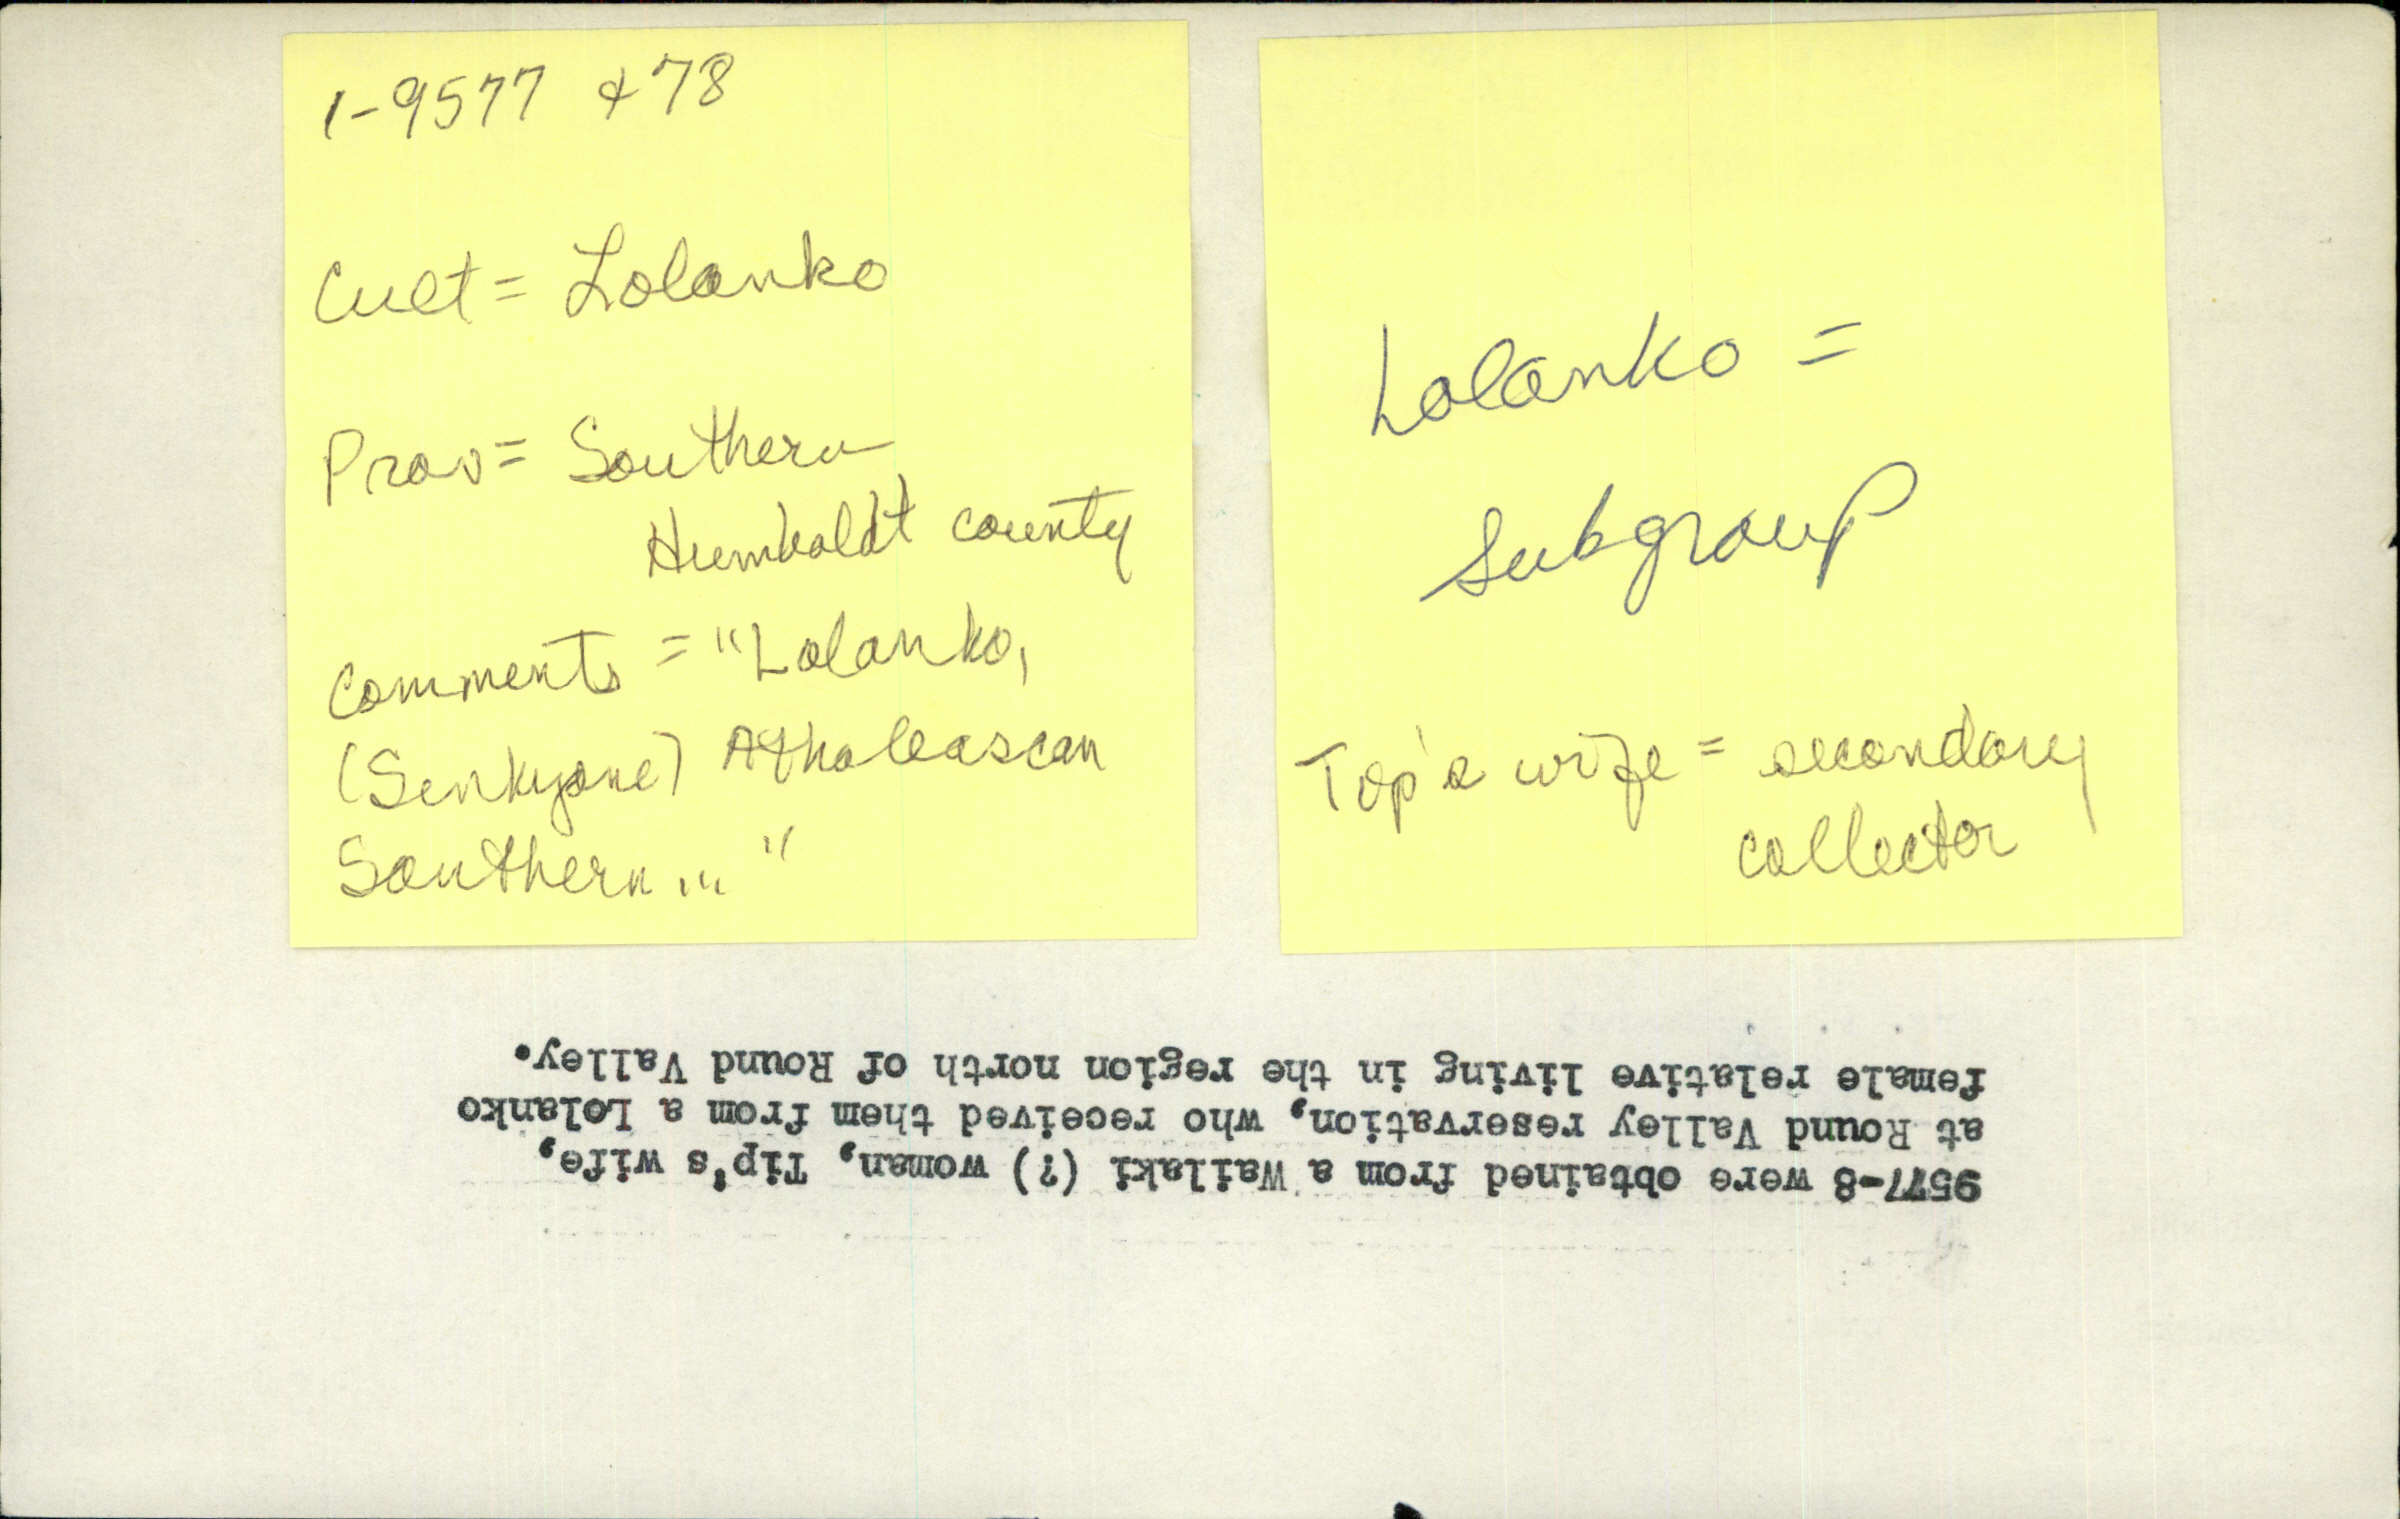 1-9577 & 78
Cult = Lolanko
Prov = Southern
Humboldt county
Comments = "Lolanko,
(Sinkyone) Athabascan
Southern..."
Lolanko =
subgroup
Tip's wife = secondary
collector
9577-8 were obtained from a Wailaki (?) woman, Tip's wife,
at Round Valley reservation, who received them from a Lolanko
female relative living in the region north of Round Valley.